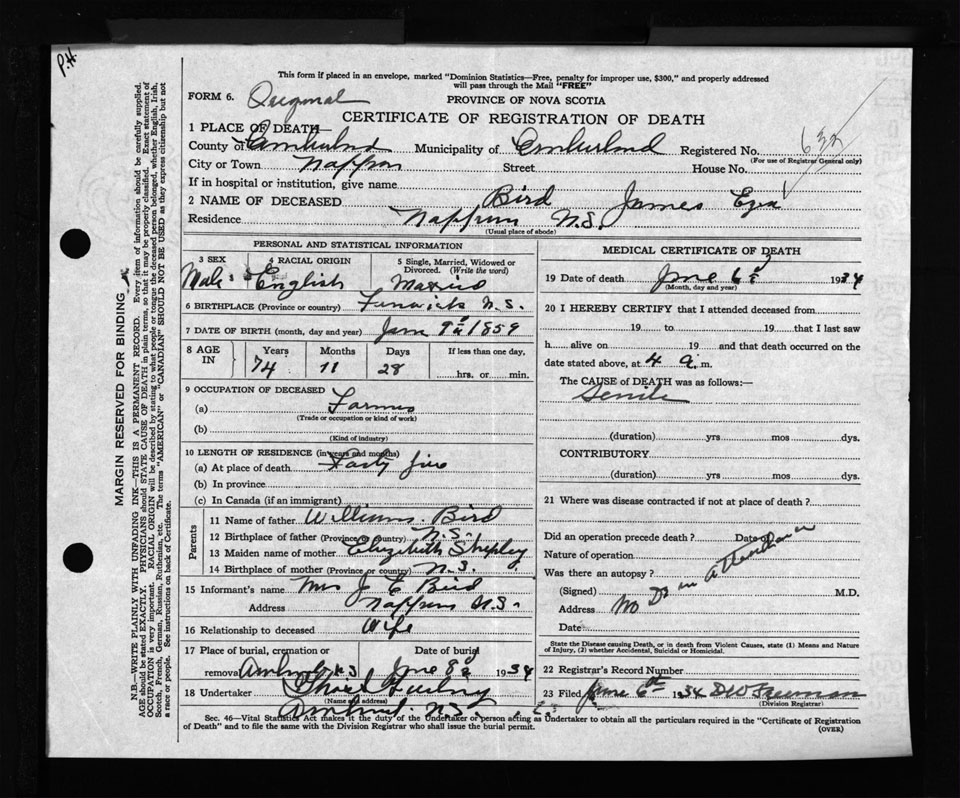 P.H.
This form if placed in an envelope, marked "Dominion Statistics—Free, penalty for improper use, $300," and properly addressed
will pass through the Mail "FREE"
FORM 6. Original
PROVINCE OF NOVA SCOTIA
CERTIFICATE OF REGISTRATION OF DEATH
1 PLACE OF DEATH—
County of Cumberland Municipality of Cumberland Registered No. 632
(For use of Registrar General only)
City or Town Nappan Street House No.
If in hospital or institution, give name
2 NAME OF DECEASED Bird James Ezra
Residence Nappan N.S.
(Usual place of abode)
PERSONAL AND STATISTICAL INFORMATION
3 SEX 4 RACIAL ORIGIN 5 Single, Married, Widowed or Divorced. (Write the word)
Male English Married
6 BIRTHPLACE (Province or country) Fenwick N.S.
7 DATE OF BIRTH (month, day and year) Jan 9th 1859
8 AGE IN Years Months Days If less than one day,
74 11 28 hrs. or min.
9 OCCUPATION OF DECEASED
(a) Farmer
(Trade or occupation or kind of work)
(b)
(Kind of industry)
10 LENGTH OF RESIDENCE (in years and months)
(a) At place of death Forty five
(b) In province
(c) In Canada (if an immigrant)
Parents
11 Name of father William Bird
12 Birthplace of father (Province or country) N.S.
13 Maiden name of mother Elizabeth Shipley
14 Birthplace of mother (Province or country) N.S.
15 Informant's name Mrs J E Bird
Address Nappan N.S.
16 Relationship to deceased Wife
17 Place of burial, cremation or Date of burial
removal Amherst N.S 1934
18 Undertaker
(Name and address)
Amherst. N.S.
MEDICAL CERTIFICATE OF DEATH
19 Date of death 6th 1934
(Month, day and year)
20 I HEREBY CERTIFY that I attended deceased from
19 to 19 that I last saw
h alive on 19 and that death occurred on the
date stated above, at 4 a. m.
The CAUSE of DEATH was as follows:—
Senile
(duration) yrs mos dys.
CONTRIBUTORY
(duration) yrs mos dys.
21 Where was disease contracted if not at place of death?
Did an operation precede death? Date of
Nature of operation
Was there an autopsy?
(Signed) M.D.
No Dr in Attendance
Address
Date
State the Disease causing Death, or in death from Violent Causes, state (1) Means and
Nature of Injury, (2) whether Accidental, Suicidal or Homicidal.
22 Registrar's Record Number
23 Filed 6th 1934 D W Freeman
(Division Registrar)
Sec. 46—Vital Statistics Act makes it the duty of the Undertaker or person acting as Undertaker to obtain all the particulars required in the "Certificate of Registration
of Death" and to file the same with the Division Registrar who shall issue the burial permit.
(OVER)
MARGIN RESERVED FOR BINDING
N.B.—WRITE PLAINLY WITH UNFADING INK—THIS IS A PERMANENT RECORD. Every item of information should be carefully supplied.
AGE should be stated EXACTLY. PHYSICIANS should STATE CAUSE OF DEATH in plain terms, so that it may be properly classified. Exact statement of
OCCUPATION is very important. RACIAL ORIGIN will be described by stating to what people or tongue the deceased person belonged, whether English, Irish,
Scotch, French, German, Russian, Ruthenian, etc. The terms "AMERICAN" or "CANADIAN" SHOULD NOT BE USED as they express citizenship but not
a race or people. See instructions on back of Certificate.